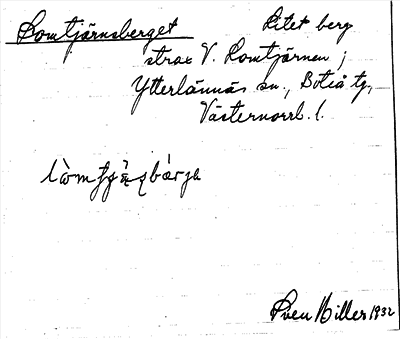 Lomtjärnsberget Litet berg
strax V. Lomtjärnen ;
Ytterlännäs sn., Boteå tg,
Västernorrl. l.
Sven Hiller 1932